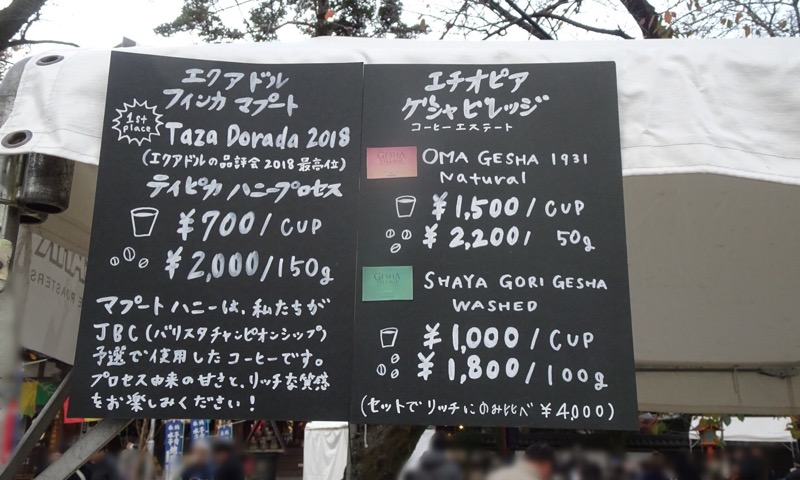 エクアドル
フィンカ マプート
1st place
Taza Dorada 2018
(エクアドルの品評会2018最高位)
ティピカ ハニープロセス
¥700/CUP
¥2,000/150g
マプート ハニーは、私たちが
JBC(バリスタチャンピオンシップ)
予選で使用したコーヒーです。
プロセス由来の甘さと、リッチな質感
をお楽しみください!
エチオピア
ゲシャビレッジ
コーヒーエステート
GESHA
OMA GESHA 1931
Natural
¥1,500/CUP
¥2,200/ 50g
GESHA
SHAYA GORI GESHA
WASHED
¥1,000/CUP
¥1,800/100g
(セットでリッチにのみ比べ ¥4,000)
ROASTERS